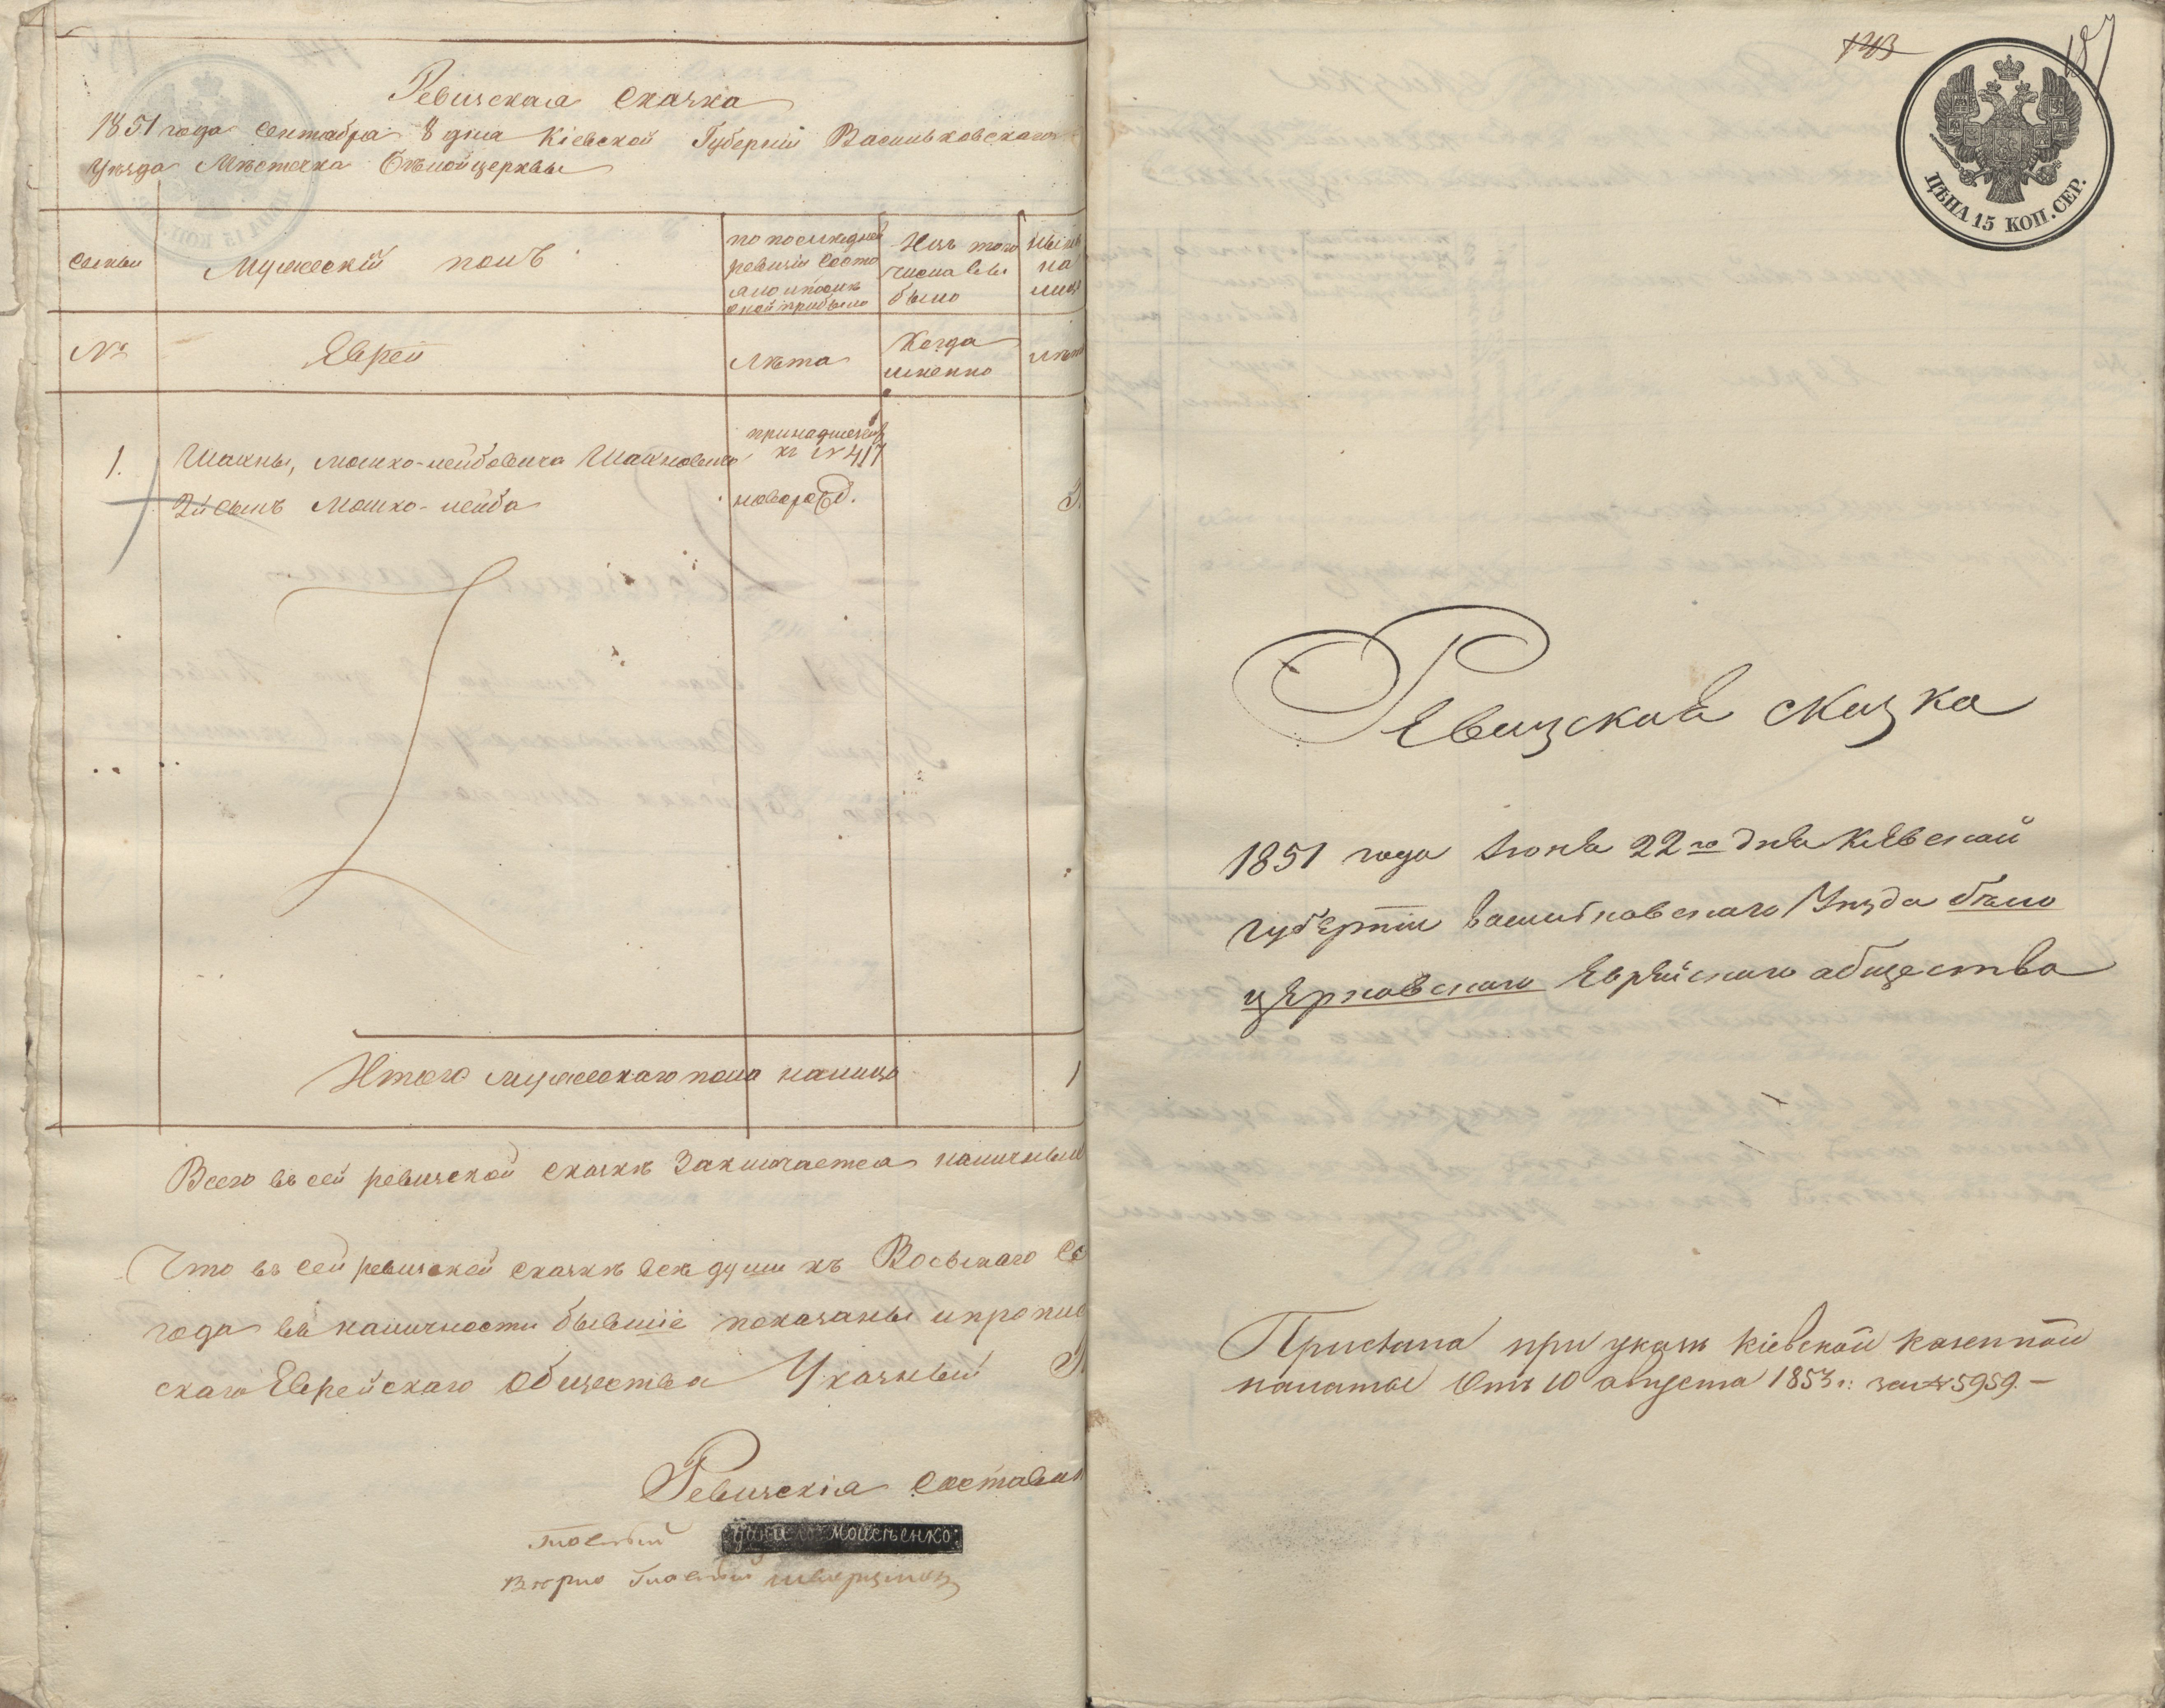 Ревизская сказка
1851 года Сентября 8 дня Кіевской Губерніи Васильковскаго
Уѣзда Мѣстечка Бѣлойцерквы
Семьи
Мужескій полъ
по последней
ревизіи состо
яло и после
оной прибыло
Изъ того
числа вы
было
Нынѣ
на
лицо
№
Еврей
Лѣта
Когда
именно
лѣта
1.
Шахны, Мошко-лейбовича Шахновича
принадлежащ
къ № 417
2й сынъ Мошко-лейба
новорожд.
Итого мужескаго пола налицо
1
Всего въ сей ревизской сказкѣ Заключается наличных
Что въ сей ревизской сказкѣ всѣ души къ Восьмаго Се
года въ наличности бывшіе показаны и пропис
скаго Еврейскаго Общества Указный
Ревизскія составля
Гласный
МОИСѢЕНКО
Вѣрно Гласный
143
187
ЦѢНА 15 КОП. СЕР.
Ревизская сказка
1851 года Іюня 22го дня Кіевской
Губерніи Васильковскаго Уѣзда Бѣло
церковскаго Еврейскаго общества
Прислана при указѣ Кіевской Казенной
палаты Отъ 10 августа 1853 г: за № 5959.—